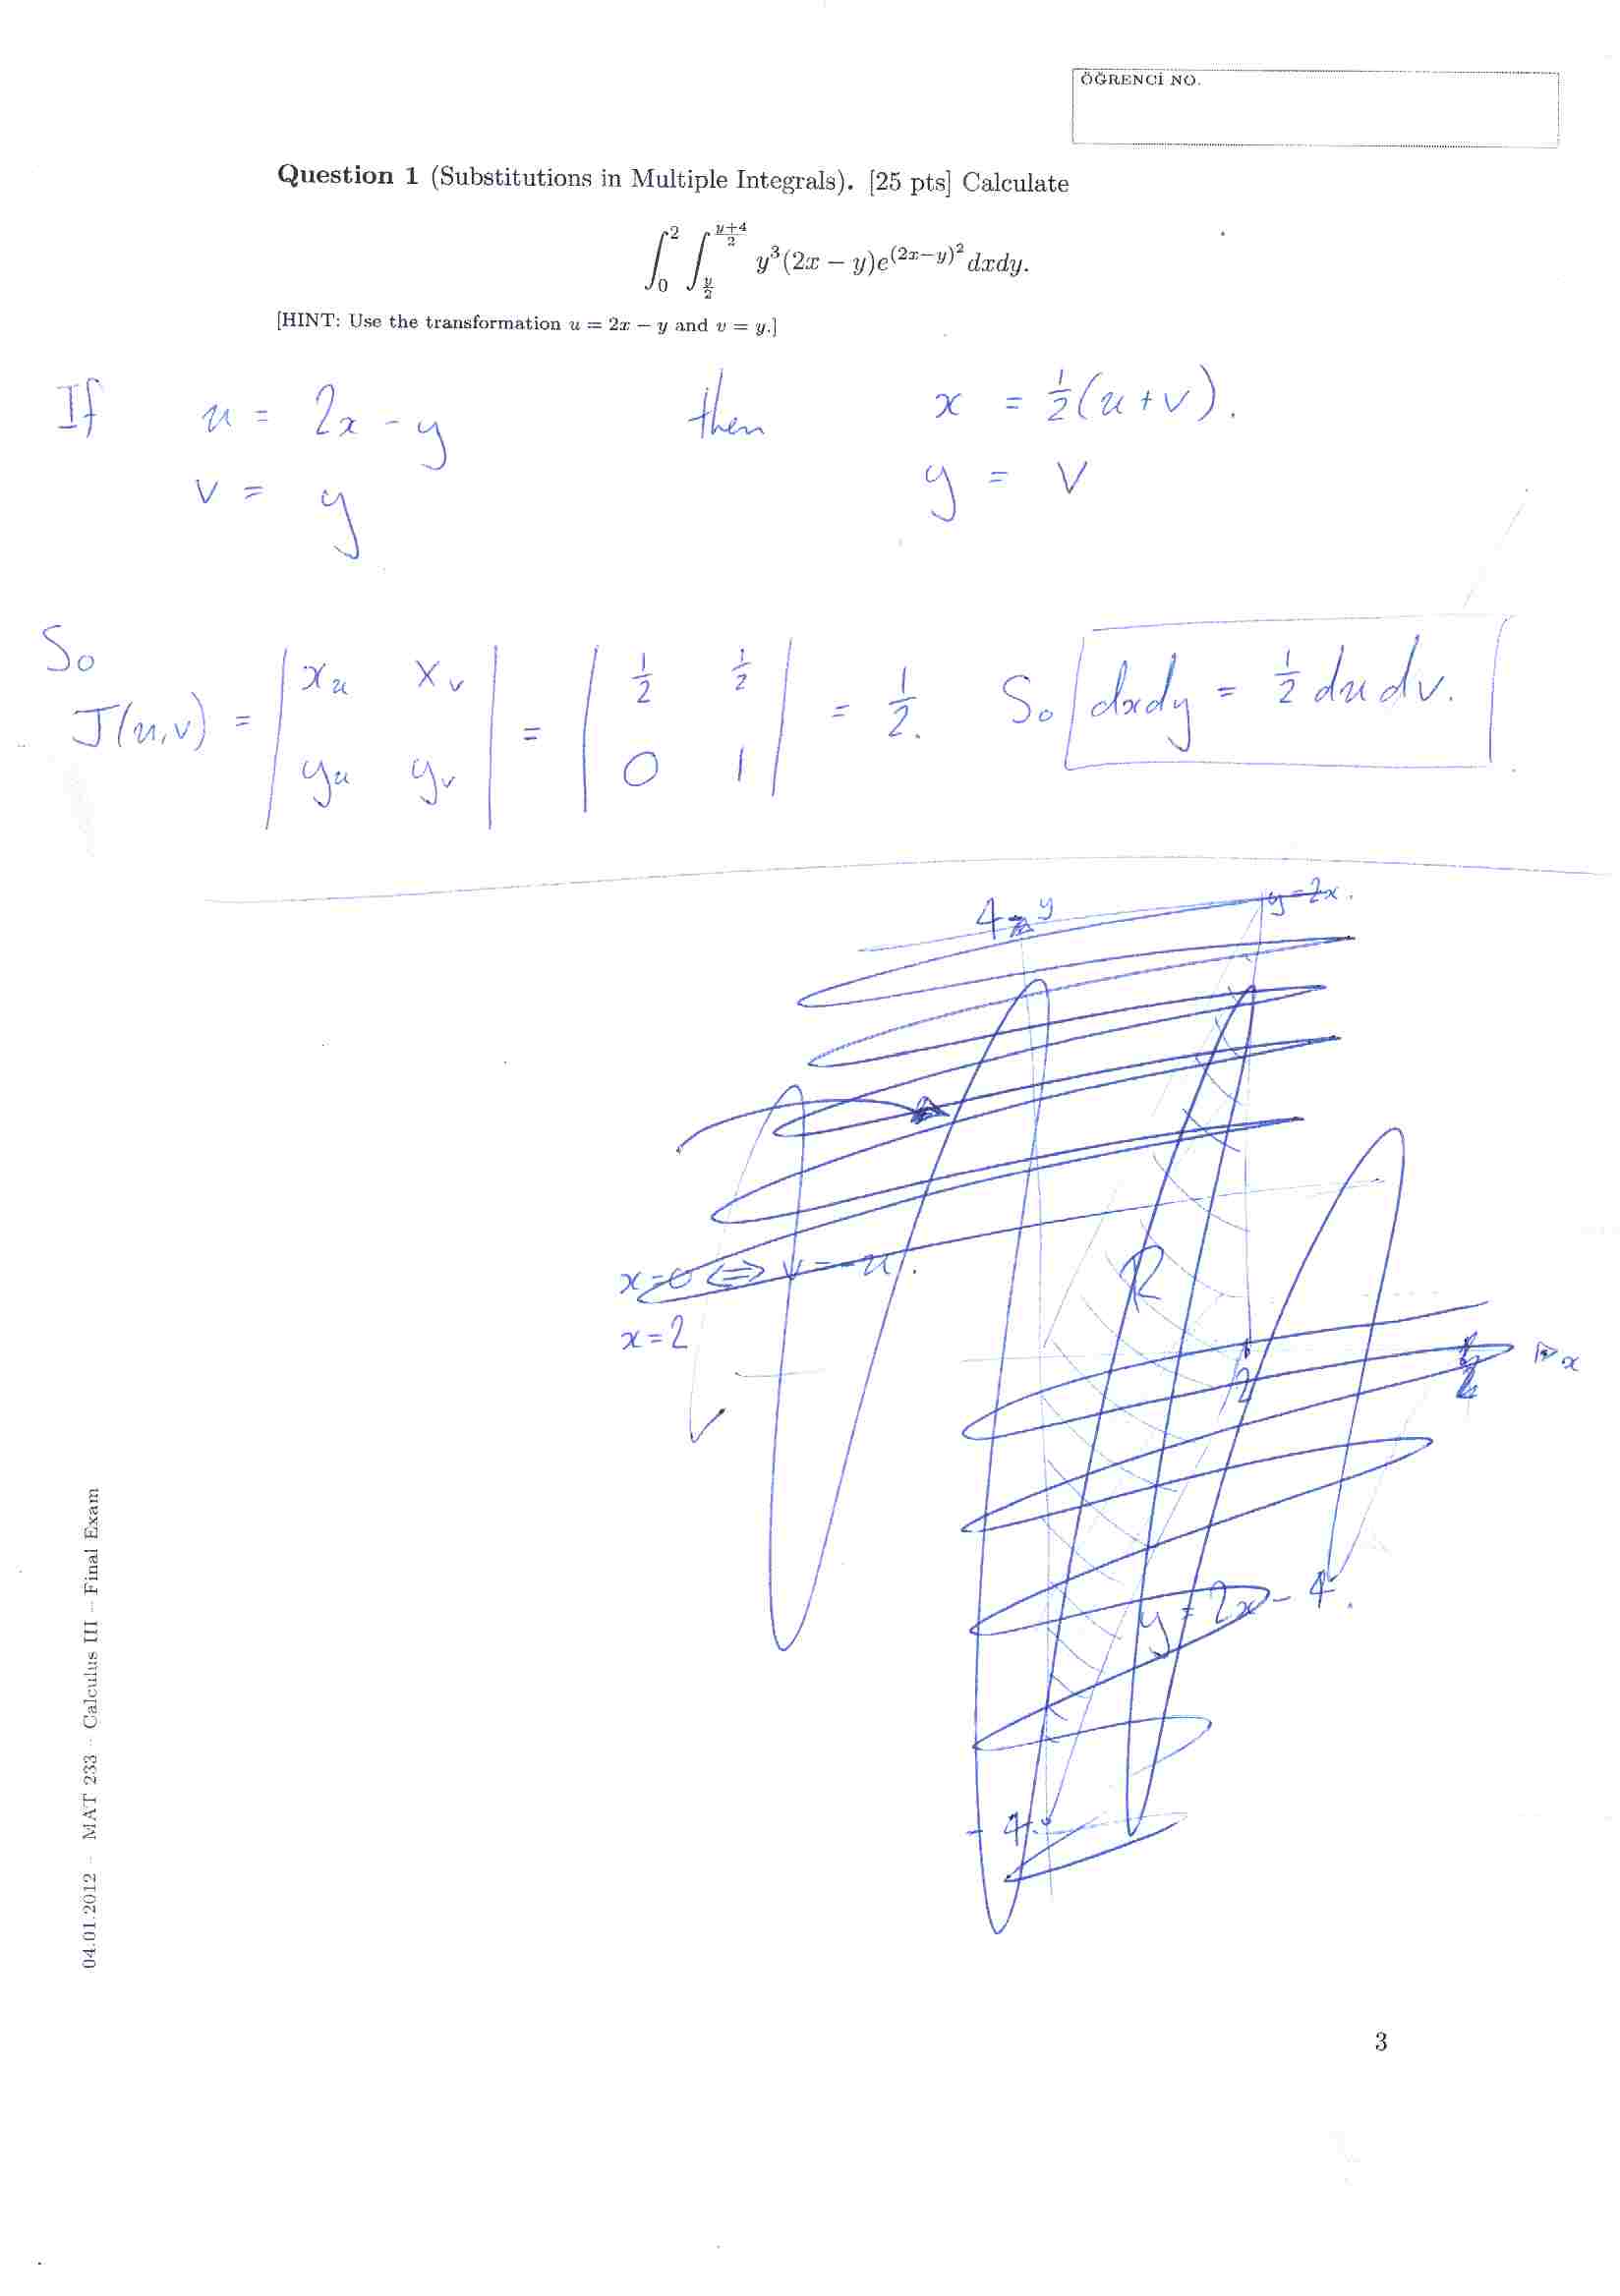 ÖĞRENCİ NO.
Question 1 (Substitutions in Multiple Integrals). [25 pts] Calculate
∫_0^2 ∫_{y/2}^{(y+4)/2} y^3(2x − y)e^{(2x−y)^2} dxdy.
[HINT: Use the transformation u = 2x − y and v = y.]
If u = 2x - y then x = 1/2(u+v).
v = y y = v
So
J(u,v) = | x_u x_v ; y_u y_v | = | 1/2 1/2 ; 0 1 | = 1/2. So dxdy = 1/2 du dv.
4 y y=2x.
R
x=0 ⇔ v=-u.
x=2
2 x
y=2x-4.
-4
04.01.2012 – MAT 233 – Calculus III – Final Exam
3